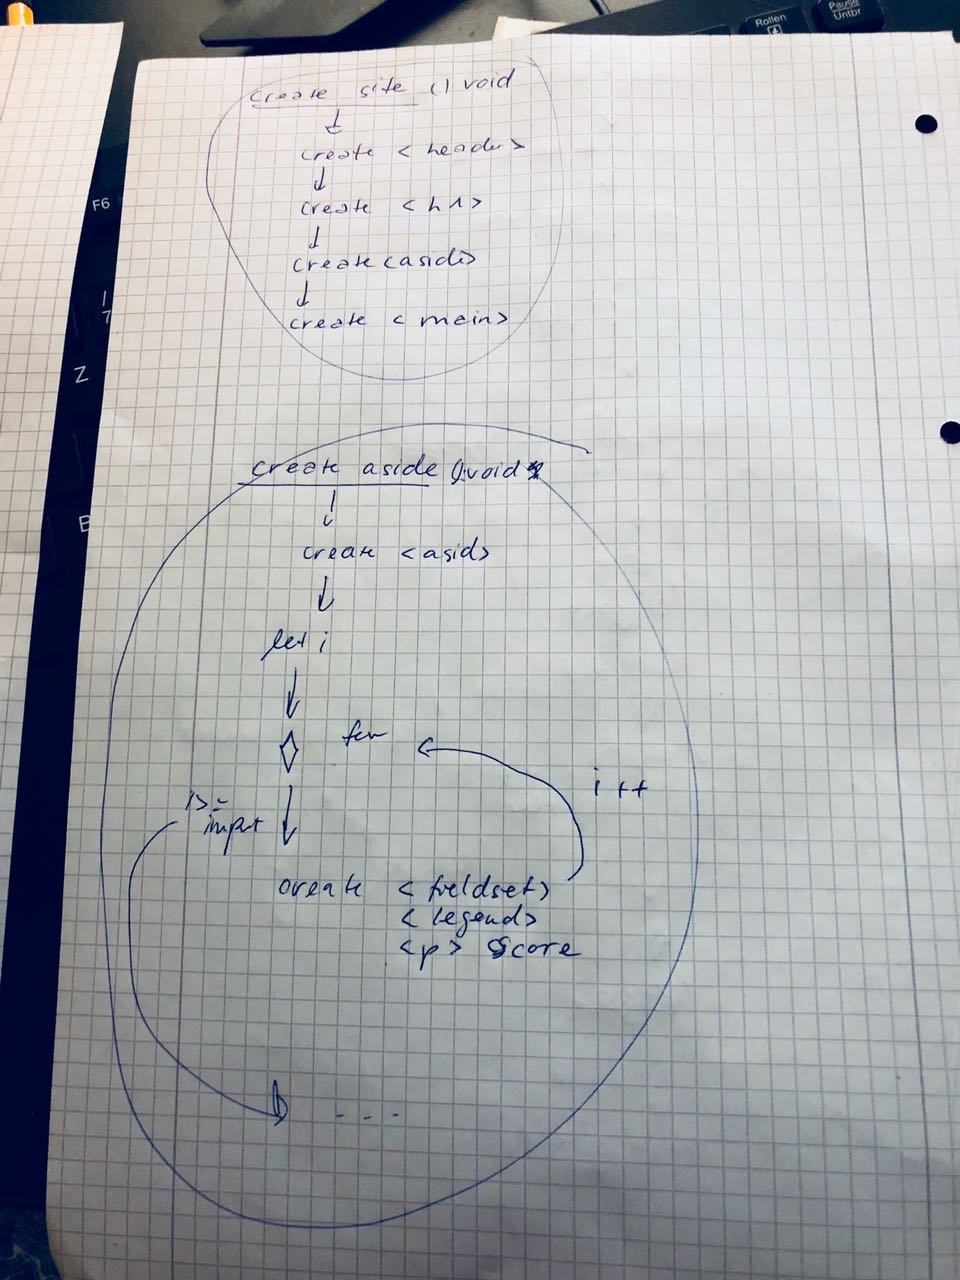 Rollen
Pause
Untbr
F6
7
Z
B
create site () void
create <header>
create <h1>
create <aside>
create <main>
create aside () void
create <asid>
let i
for
i ++
i >=
input
create <fieldset>
<legend>
<p> Score
. . .